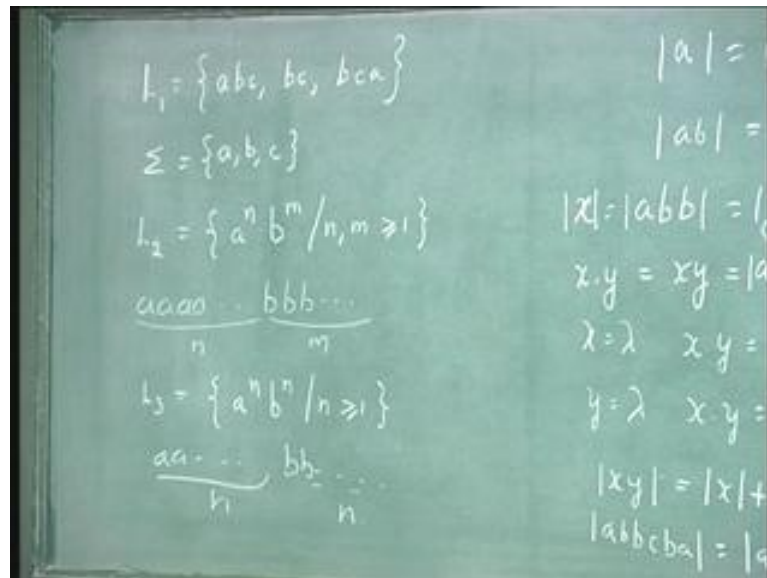 L₁ = {abc, bc, bca}
Σ = {a, b, c}
L₂ = {aⁿ bᵐ / n, m ⩾ 1}
aaaa .. bbb...
n m
L₃ = {aⁿ bⁿ / n ⩾ 1}
aa.... bb.....
n n
|a| =
|ab| =
|x| = |abb| =
x.y = xy = |a
λ = λ x y =
y = λ x.y =
|xy| = |x| +
|abbcba| = |a